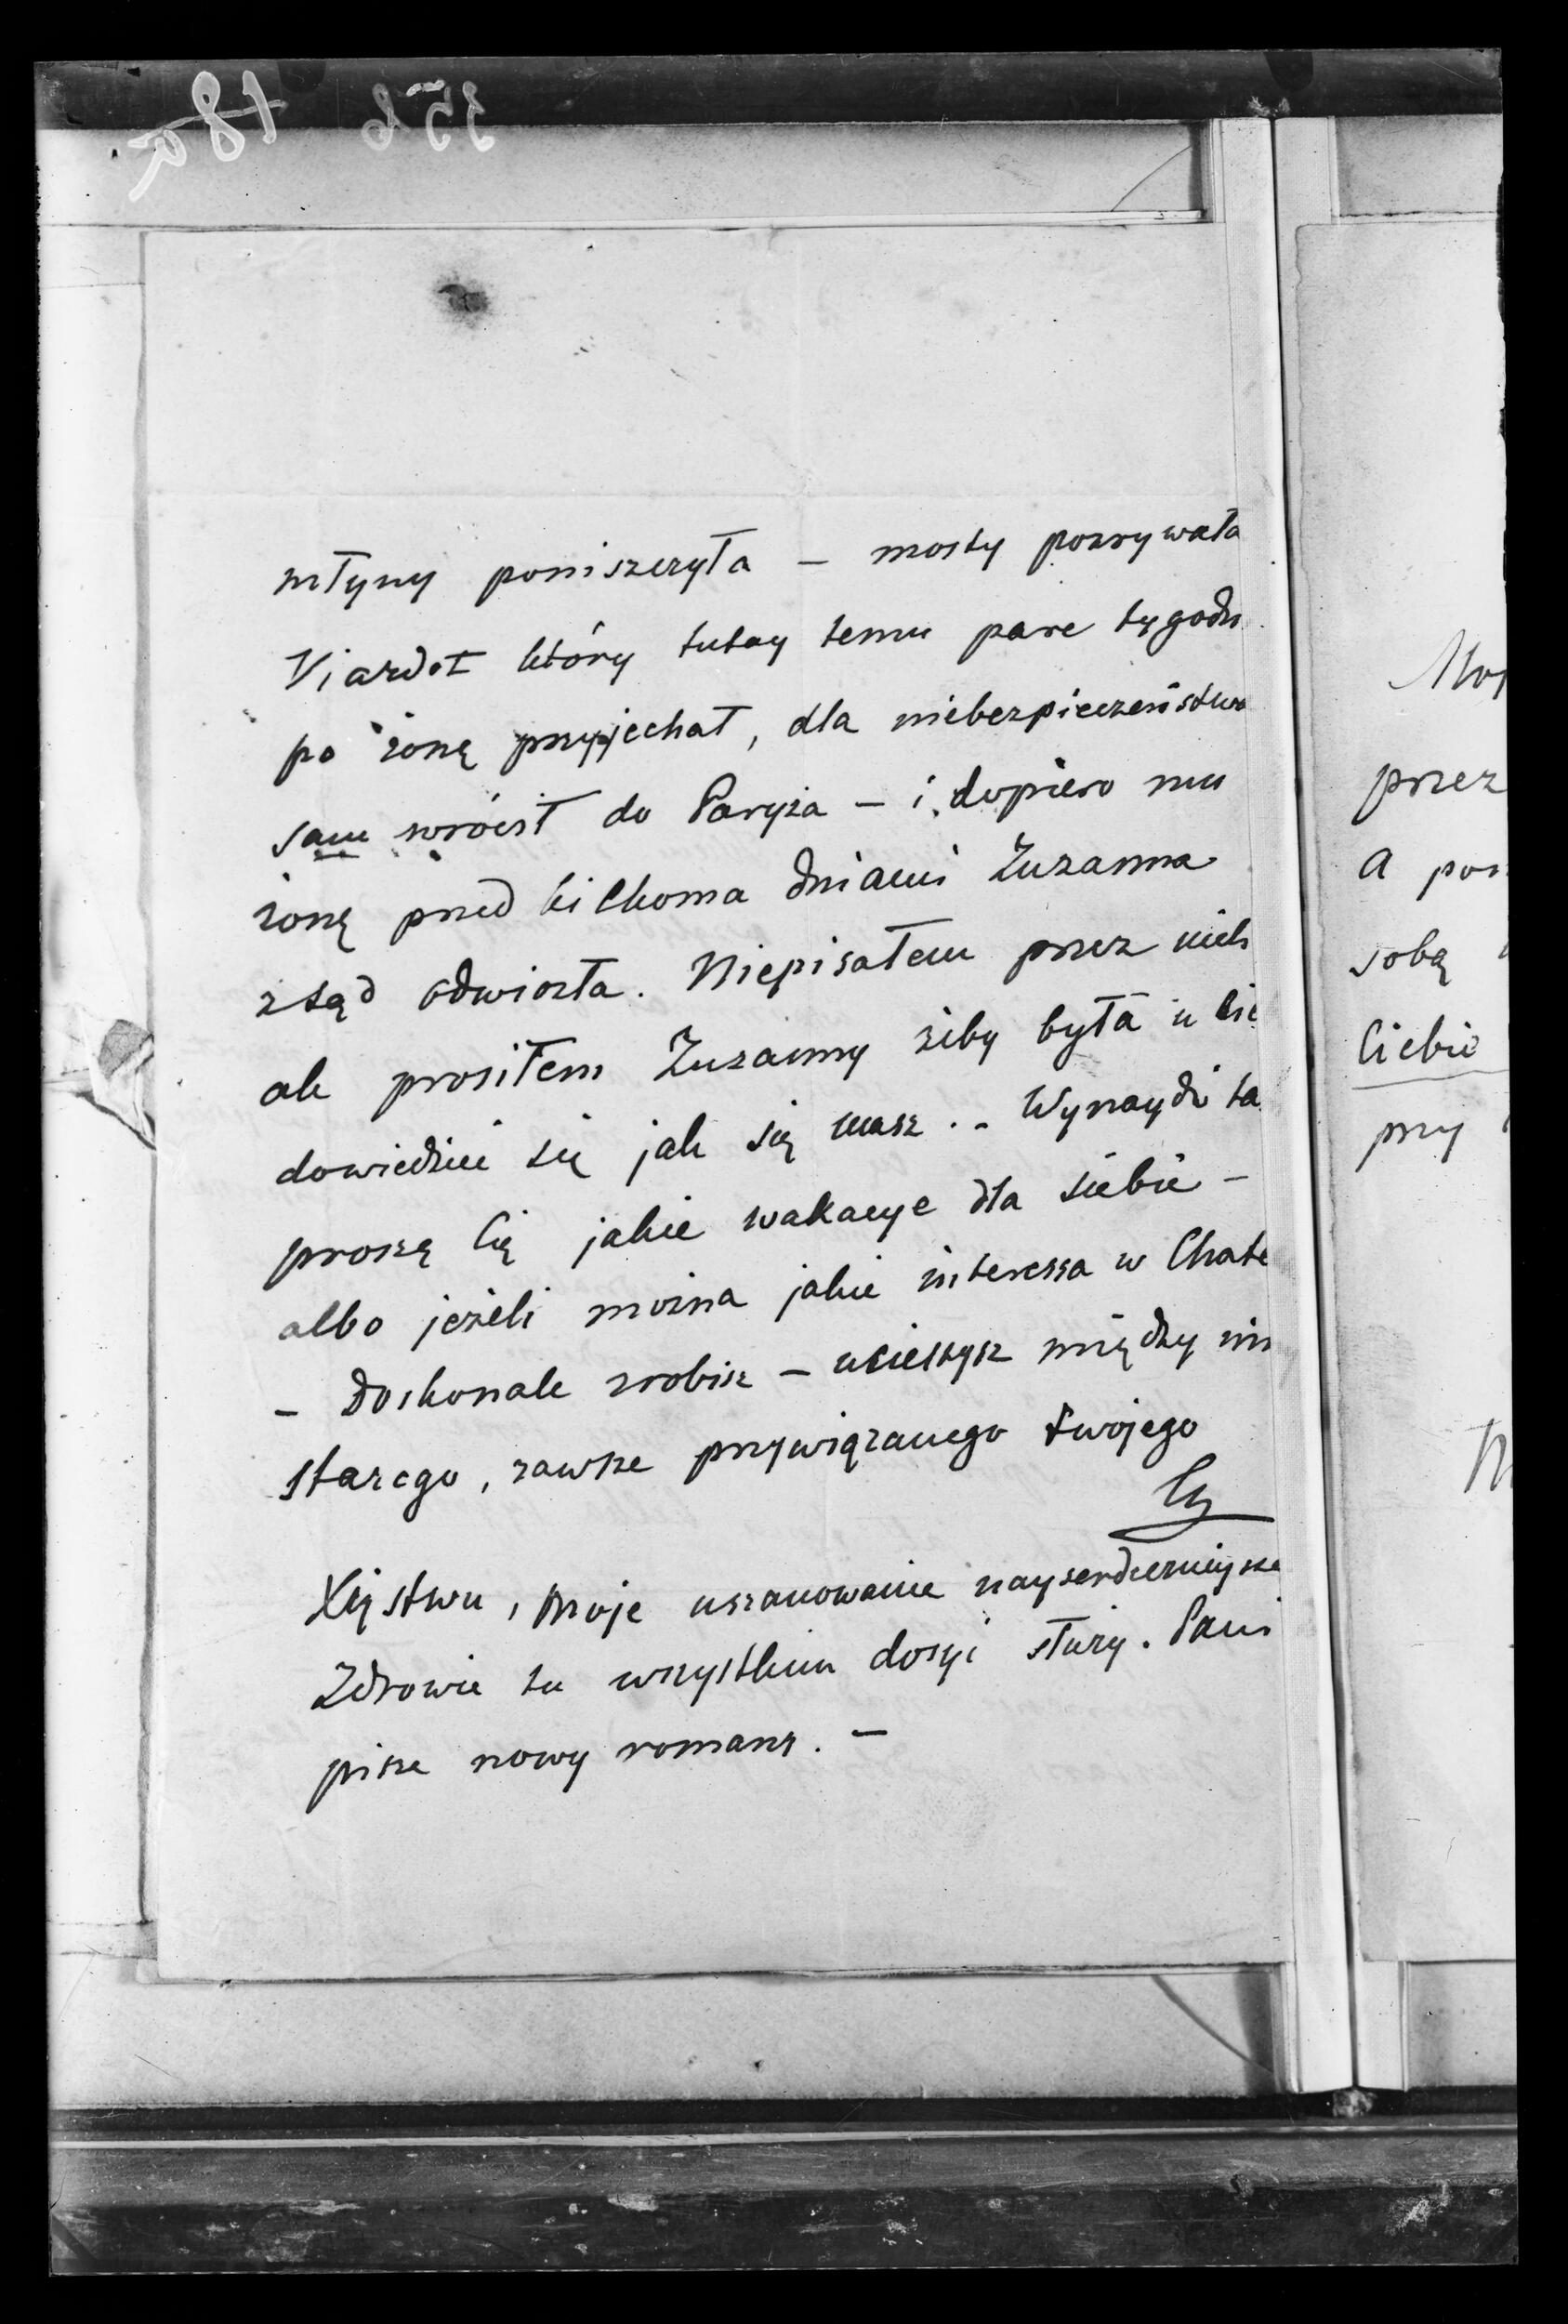 356 18a
młyny poniszczyła — mosty pozrywała
Viardot który tutay temu pare tygodn
po żonę przyjechał, dla niebezpieczeństwa
sam wrócił do Paryża — i dopiero mu
żonę przed kilkoma dniami Zuzanna
ztąd odwiozła. Niepisałem przez nich
ale prosiłem Zuzanny żeby była u Cie
dowiedzieć się jak się masz .. Wynaydź ta
proszę Cię jakie wakacye dla siebie —
albo jeżeli można jakie interessa w Chate
— doskonale zrobisz — ucieszysz między in
starego, zawsze przywiązanego twojego
Ch
Xięstwu, moje uszanowanie nayserdecznieysze
Zdrowie tu wszystkim dosyć służy. Pani
pisze nowy romans. —
przez
a
sobą
Ciebie
przy